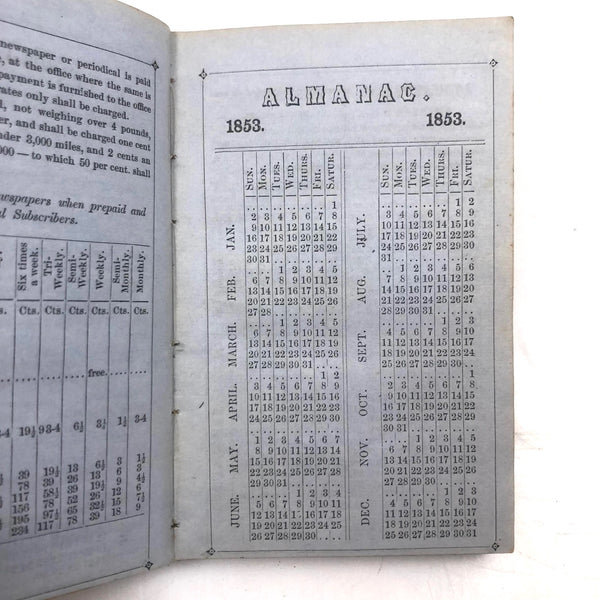 newspaper or periodical is paid
, at the office where the same is
payment is furnished to the office
rates only shall be charged.
not weighing over 4 pounds,
and shall be charged one cent
3,000 miles, and 2 cents an
000 — to which 50 per cent. shall
newspapers when prepaid and
Subscribers.
Six times a week. Tri-Weekly. Semi-Weekly. Weekly. Semi-Monthly. Monthly.
Cts. Cts. Cts. Cts. Cts. Cts.
free.
19½ 9 3-4 6½ 3¼ 1½ 3-4
39 19½ 13 6½ 3 1½
78 39 26 13 6 3
117 58½ 39 19½ 9 4½
156 78 52 26 12 6
195 97½ 65 32½ 15 7½
234 117 78 39 18 9
ALMANAC.
1853. 1853.
SUN. MON. TUES. WED. THURS. FRI. SATUR.
JAN.
1
2 3 4 5 6 7 8
9 10 11 12 13 14 15
16 17 18 19 20 21 22
23 24 25 26 27 28 29
30 31
FEB.
1 2 3 4 5
6 7 8 9 10 11 12
13 14 15 16 17 18 19
20 21 22 23 24 25 26
27 28
MARCH.
1 2 3 4 5
6 7 8 9 10 11 12
13 14 15 16 17 18 19
20 21 22 23 24 25 26
27 28 29 30 31
APRIL.
1 2
3 4 5 6 7 8 9
10 11 12 13 14 15 16
17 18 19 20 21 22 23
24 25 26 27 28 29 30
MAY.
1 2 3 4 5 6 7
8 9 10 11 12 13 14
15 16 17 18 19 20 21
22 23 24 25 26 27 28
29 30 31
JUNE.
1 2 3 4
5 6 7 8 9 10 11
12 13 14 15 16 17 18
19 20 21 22 23 24 25
26 27 28 29 30
SUN. MON. TUES. WED. THURS. FRI. SATUR.
JULY.
1 2
3 4 5 6 7 8 9
10 11 12 13 14 15 16
17 18 19 20 21 22 23
24 25 26 27 28 29 30
31
AUG.
1 2 3 4 5 6
7 8 9 10 11 12 13
14 15 16 17 18 19 20
21 22 23 24 25 26 27
28 29 30 31
SEPT.
1 2 3
4 5 6 7 8 9 10
11 12 13 14 15 16 17
18 19 20 21 22 23 24
25 26 27 28 29 30
OCT.
1
2 3 4 5 6 7 8
9 10 11 12 13 14 15
16 17 18 19 20 21 22
23 24 25 26 27 28 29
30 31
NOV.
1 2 3 4 5
6 7 8 9 10 11 12
13 14 15 16 17 18 19
20 21 22 23 24 25 26
27 28 29 30
DEC.
1 2 3
4 5 6 7 8 9 10
11 12 13 14 15 16 17
18 19 20 21 22 23 24
25 26 27 28 29 30 31